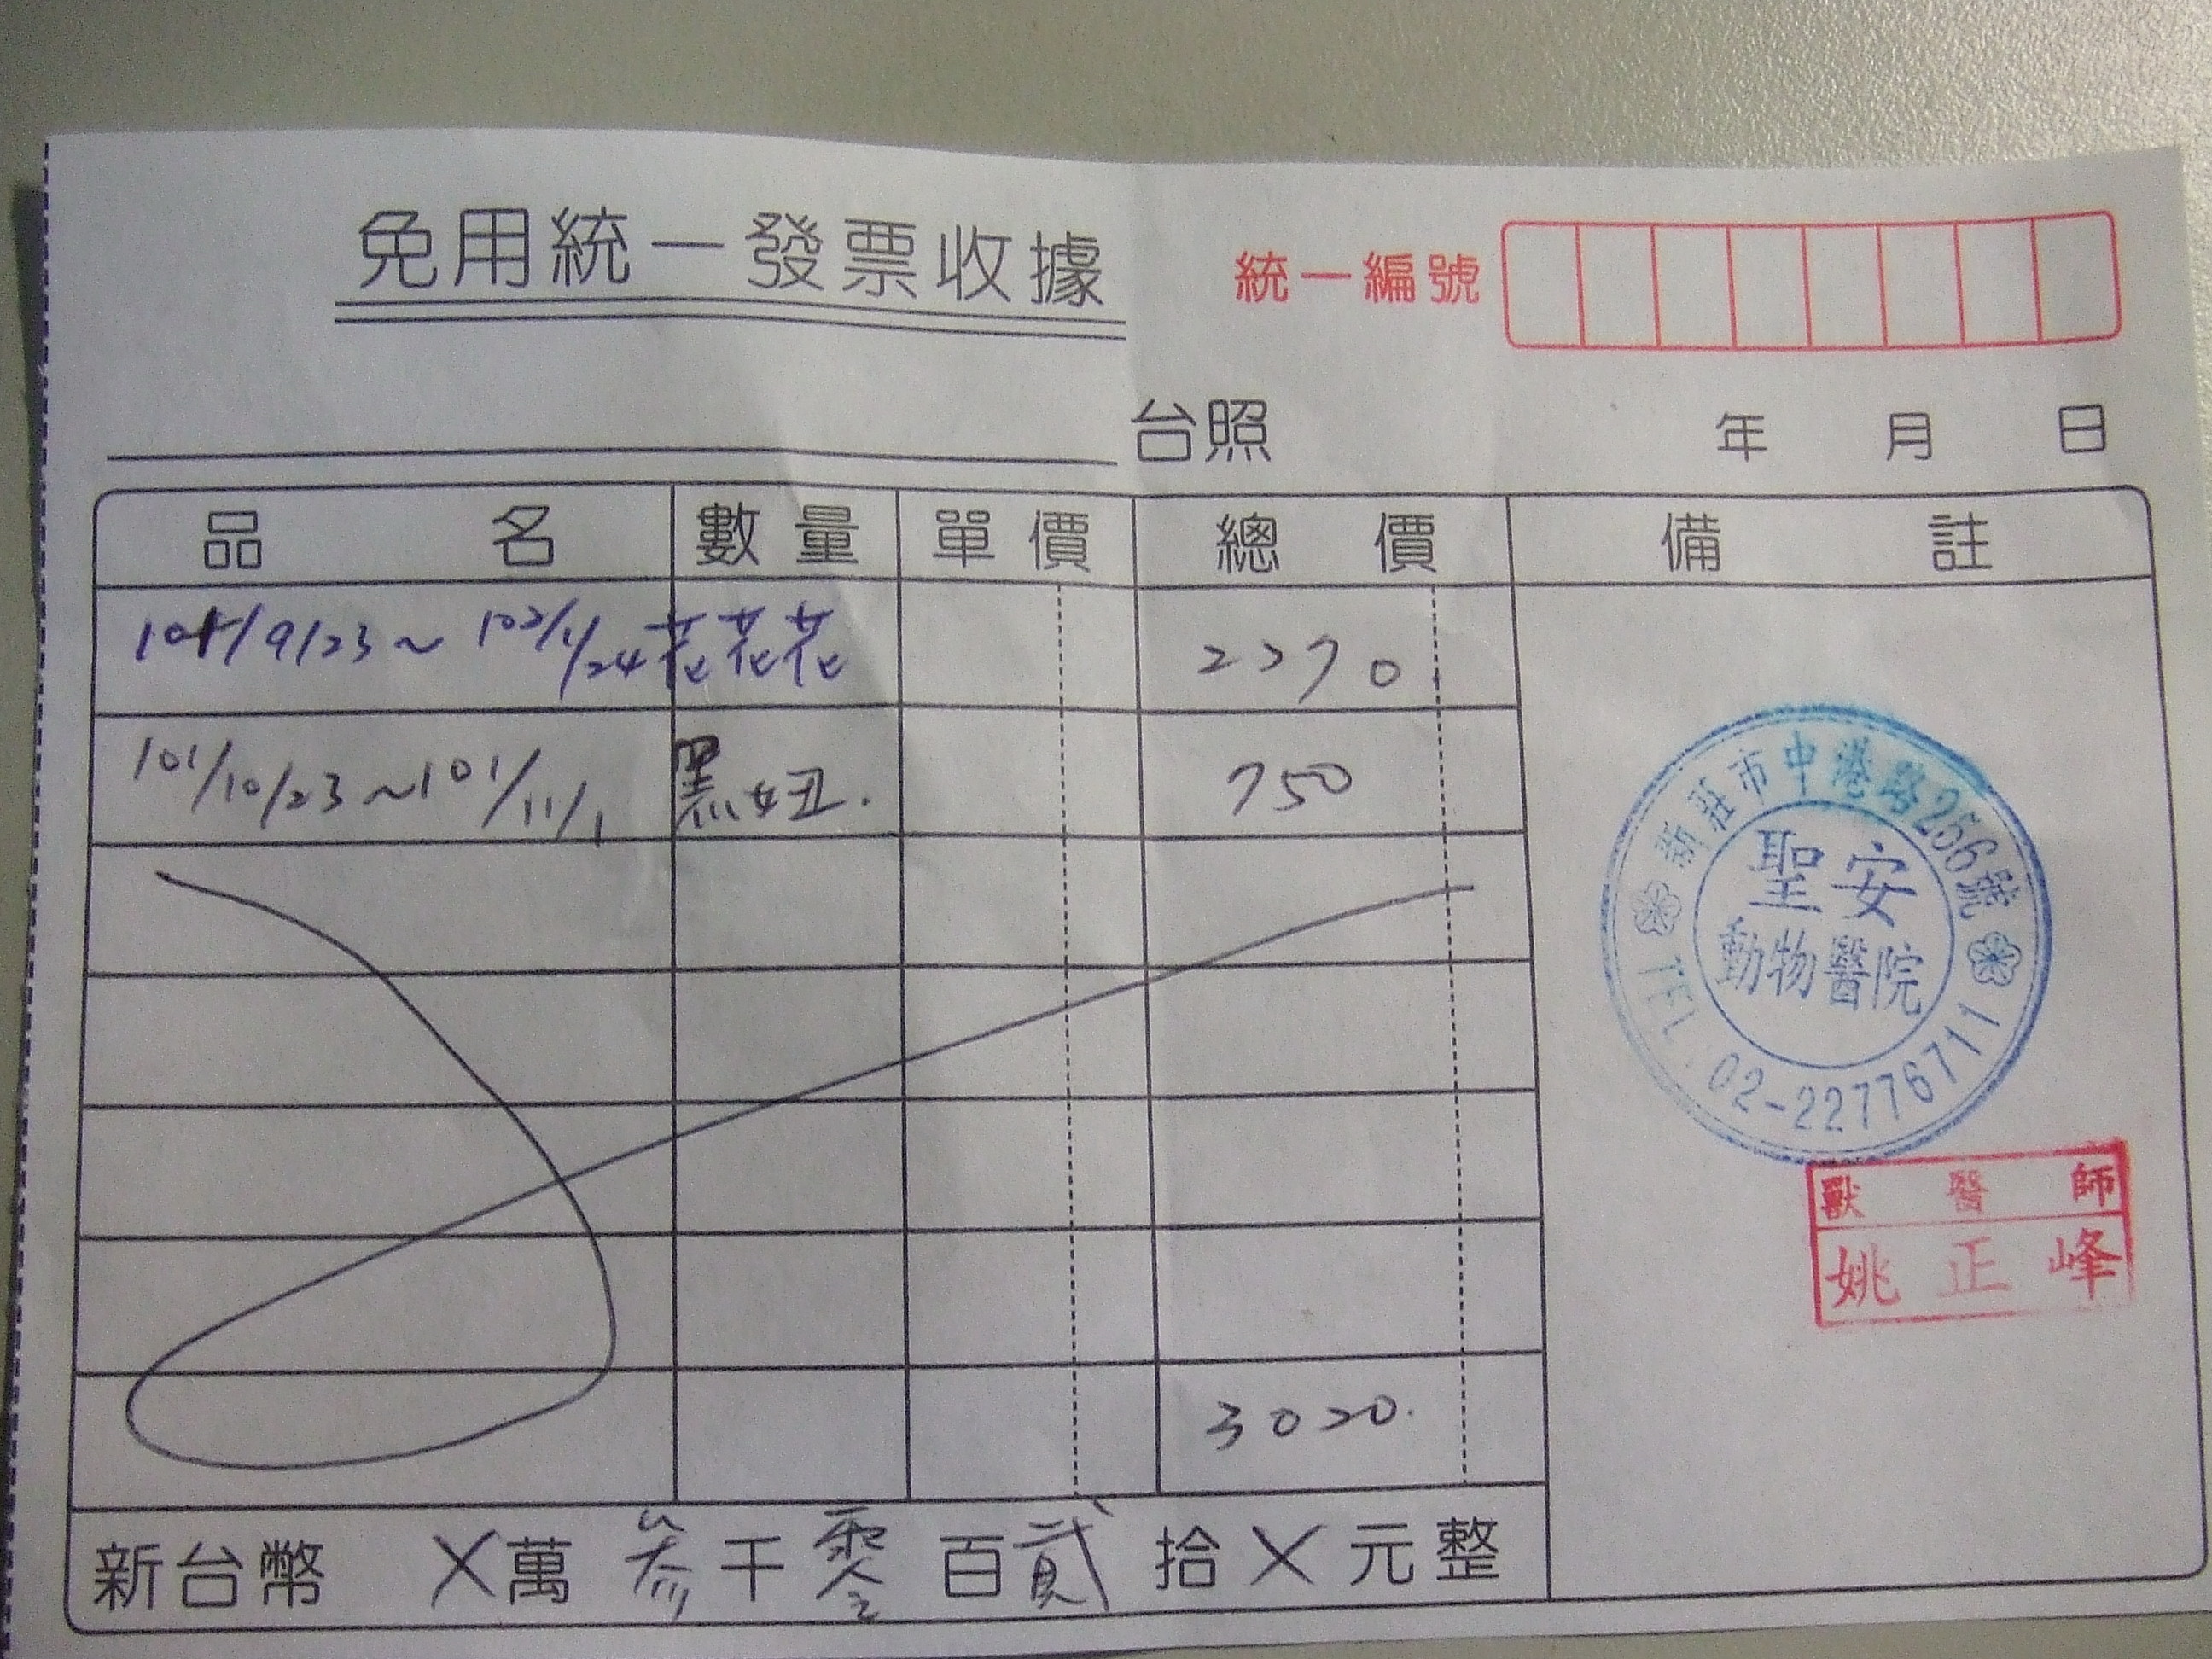 免用統一發票收據
統一編號
台照 年 月 日
品名 數量 單價 總價 備註
101/9/23～102/1/24 花花花 2270
101/10/23～101/11/1 黑妞. 750
新莊市中港路256號
聖安
動物醫院
TEL 02-22776711
獸醫師
姚正峰
3020.
新台幣 X萬 參千 零百 貳拾 X元整